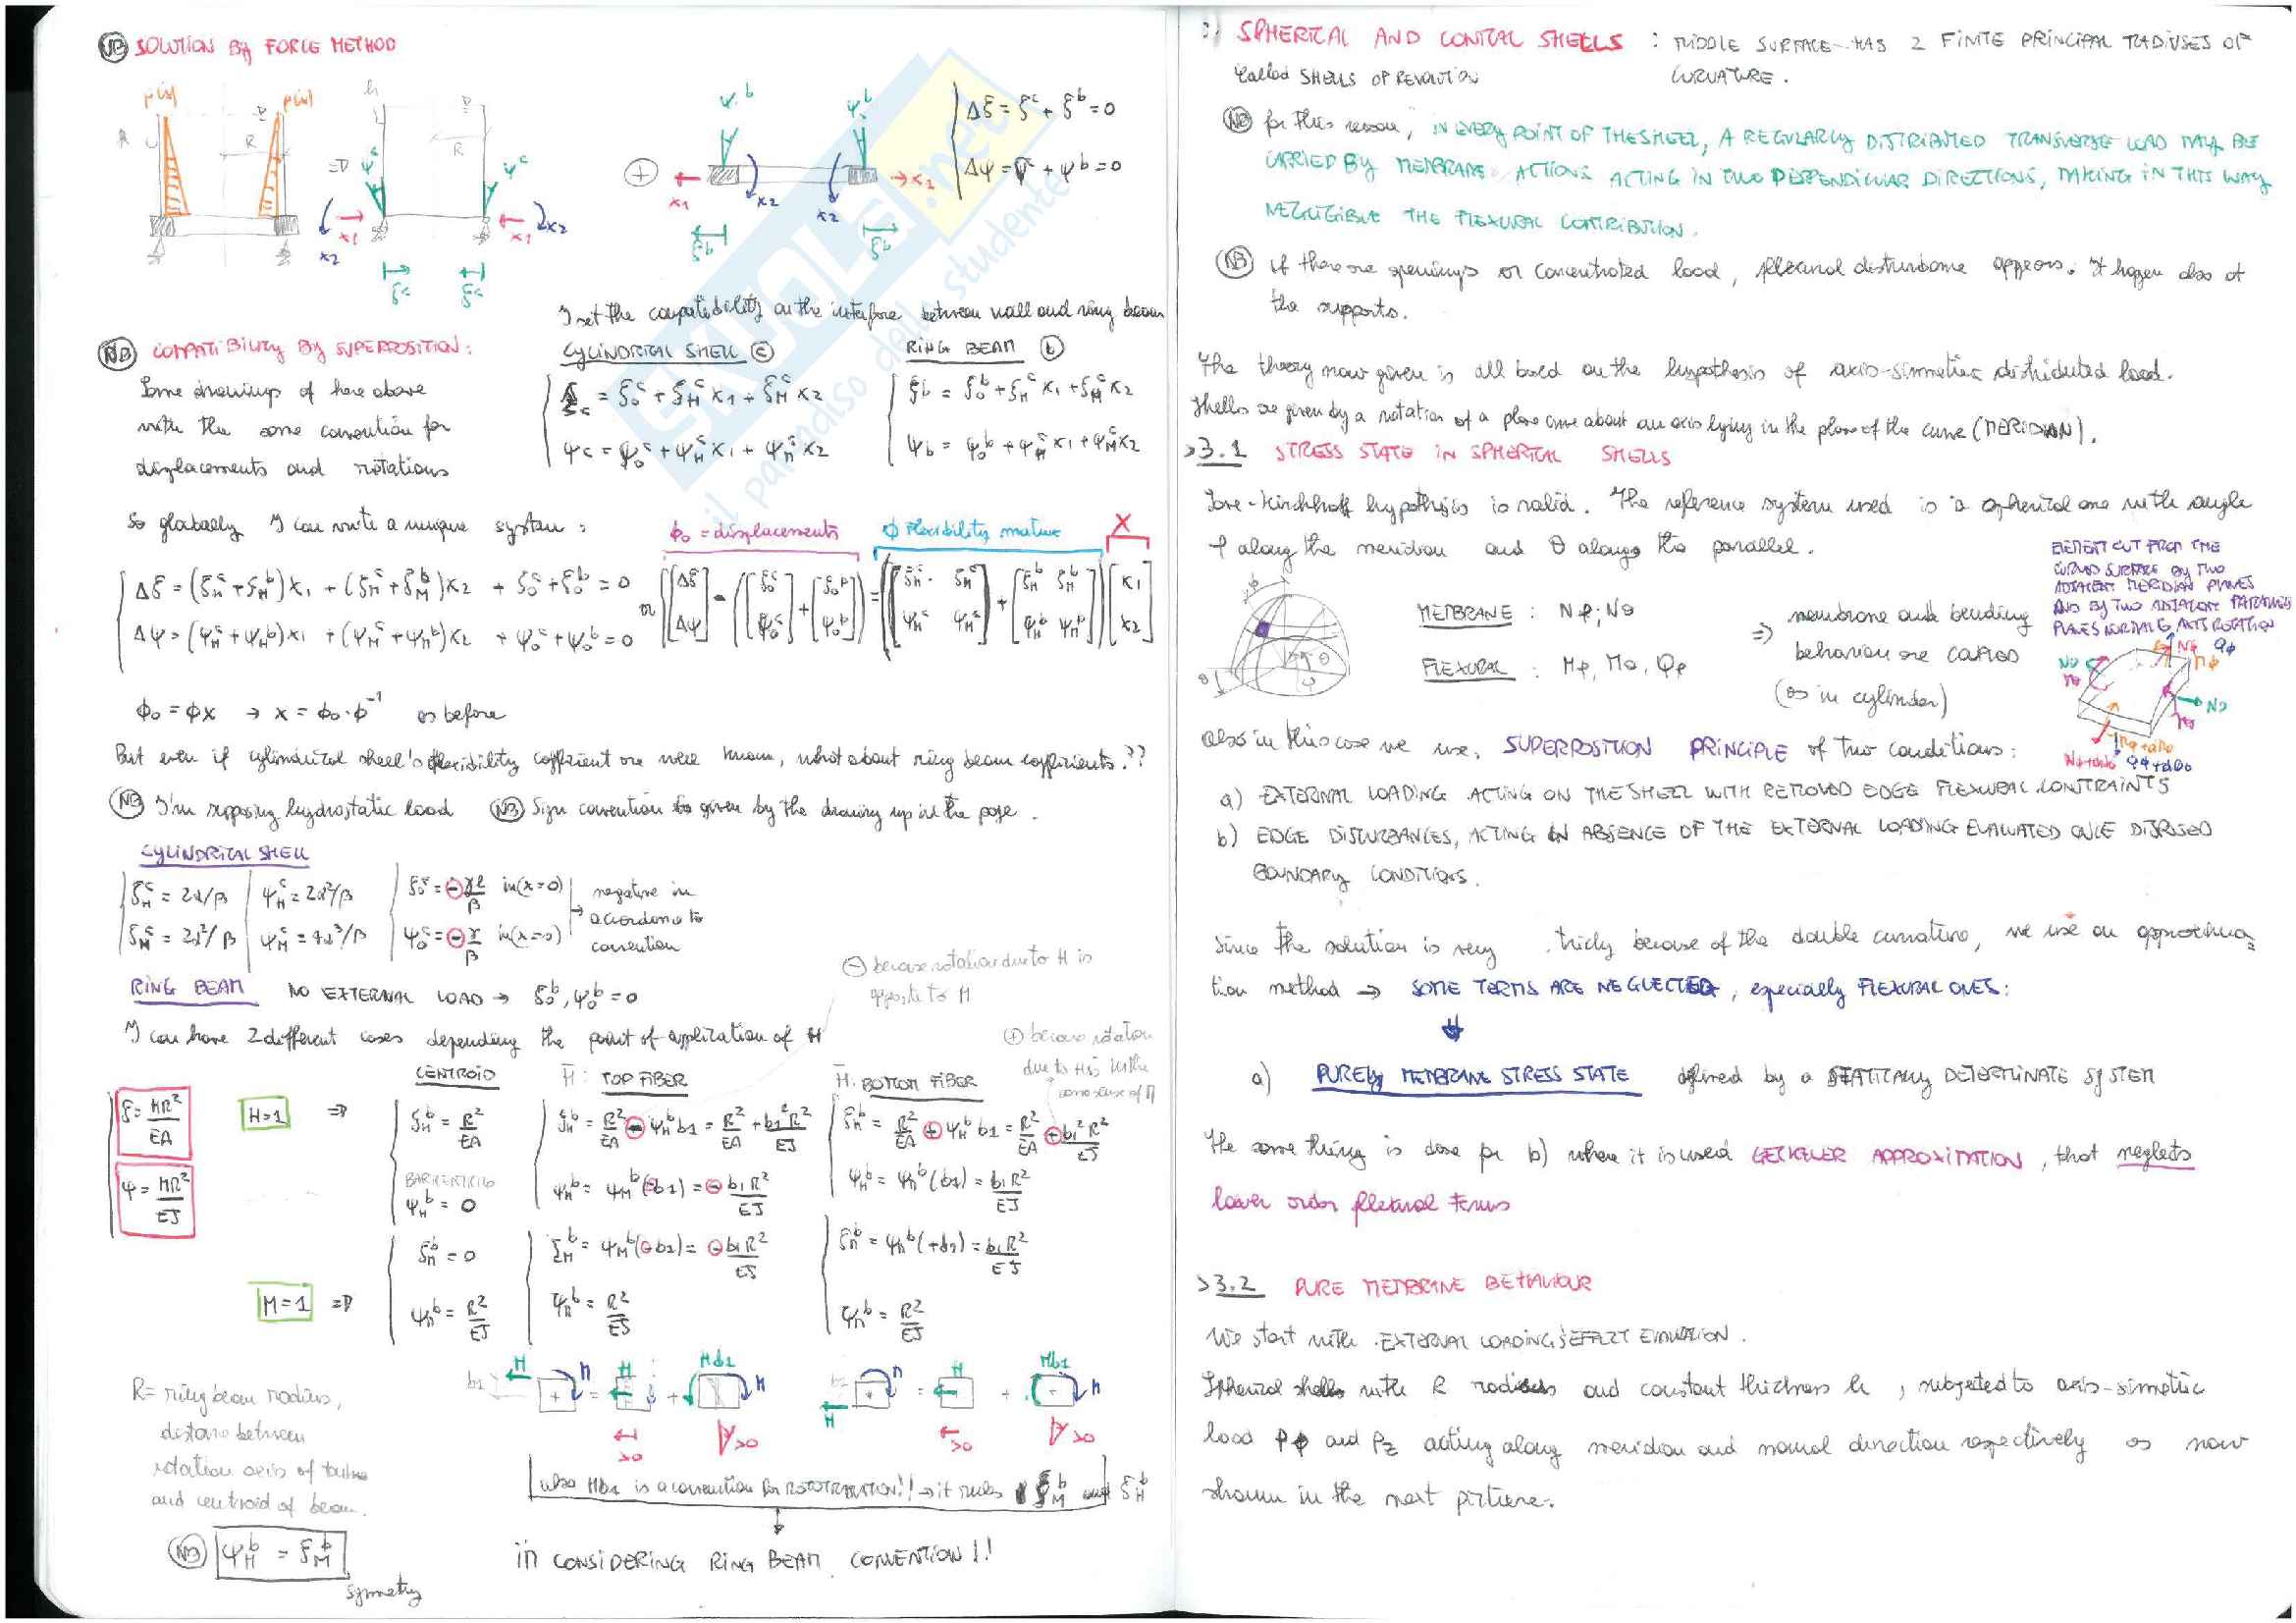 NB SOLUTION By FORCE METHOD
p(x) p(x)
R R
h
R
ψᶜ ψᶜ
x1 x1
x2 x2
ξᶜ ξᶜ
ψᵇ ψᵇ
x1 x2 x2 x1
ξᵇ ξᵇ
Δξ = ξᶜ + ξᵇ = 0
Δψ = ψᶜ + ψᵇ = 0
SKUOLA.net
il paradiso dello studente
I set the compatibility on the interface between wall and ring beam
NB COMPATIBILITY By SUPERPOSITION:
Some drawings of here above
with the same convention for
displacements and rotations
CYLINDRICAL SHELL (c)
ξc = ξ₀ᶜ + ξHᶜ x1 + ξMᶜ x2
ψc = ψ₀ᶜ + ψHᶜ x1 + ψMᶜ x2
RING BEAM (b)
ξᵇ = ξ₀ᵇ + ξHᶜ x1 + ξMᶜ x2
ψb = ψ₀ᵇ + ψHᶜ x1 + ψMᶜ x2
So globally I can write a unique system:
ϕ₀ = displacements ϕ Flexibility matrix X
Δξ = (ξHᶜ + ξHᵇ)x1 + (ξMᶜ + ξMᵇ)x2 + ξ₀ᶜ + ξ₀ᵇ = 0
Δψ = (ψHᶜ + ψHᵇ)x1 + (ψMᶜ + ψMᵇ)x2 + ψ₀ᶜ + ψ₀ᵇ = 0
or [Δξ Δψ] - ([ξ₀ᶜ ψ₀ᶜ] + [ξ₀ᵇ ψ₀ᵇ]) = ([ξHᶜ ξMᶜ ψHᶜ ψMᶜ] + [ξHᵇ ξMᵇ ψHᵇ ψMᵇ]) [x1 x2]
ϕ₀ = ϕx → x = ϕ₀·ϕ⁻¹ as before
But even if cylindrical shell's flexibility coefficient are well known, what about ring beam coefficients??
NB I'm supposing hydrostatic load NB Sign convention is given by the drawing up in the page.
CYLINDRICAL SHELL
ξHᶜ = 2α/β ψHᶜ = 2α²/β ξ₀ᶜ = -γl/β in (x=0) negative in
ξMᶜ = 2α²/β ψMᶜ = 4α³/β ψ₀ᶜ = -γ/β in (x=0) → accordance to
convention
RING BEAM NO EXTERNAL LOAD → ξ₀ᵇ, ψ₀ᵇ = 0
⊖ because rotation due to H is
opposite to M
I can have 2 different cases depending the point of application of H
⊕ because rotation
due to H is in the
same sense of M
CENTROID H: TOP FIBER H: BOTTOM FIBER
ξ = HR²/EA
ψ = MR²/EJ
H=1 ⇒
ξHᵇ = R²/EA
BARICENTRIC
ψHᵇ = 0
ξHᵇ = R²/EA - ψHᵇ b1 = R²/EA + b1²R²/EJ
ψHᵇ = ψMᵇ(-b1) = -b1R²/EJ
ξHᵇ = R²/EA + ψHᵇ b1 = R²/EA + b1²R²/EJ
ψHᵇ = ψMᵇ(b1) = b1R²/EJ
M=1 ⇒
ξMᵇ = 0
ψMᵇ = R²/EJ
ξMᵇ = ψMᵇ(-b1) = -b1R²/EJ
ψMᵇ = R²/EJ
ξMᵇ = ψMᵇ(+b1) = b1R²/EJ
ψMᵇ = R²/EJ
b1 H M = H + Hb1 M
>0 >0
H M = H + Hb1 M
>0 >0
R = ring beam radius,
distance between
rotation axis of tube
and centroid of beam.
also Hb1 is a convention for ROTOTRASLATION!! → it rules ξMᵇ and ξHᵇ
NB ψHᵇ = ξMᵇ
symmetry
in CONSIDERING RING BEAM CONVENTION!!
SPHERICAL AND CONICAL SHELLS : MIDDLE SURFACE HAS 2 FINITE PRINCIPAL RADIUSES OF
Called SHELLS OF REVOLUTION CURVATURE.
NB for this reason, IN EVERY POINT OF THE SHELL, A REGULARLY DISTRIBUTED TRANSVERSE LOAD MAY BE
CARRIED BY MEMBRANE ACTIONS ACTING IN TWO PERPENDICULAR DIRECTIONS, MAKING IN THIS WAY
NEGLIGIBLE THE FLEXURAL CONTRIBUTION.
NB if there are openings or concentrated load, flexural disturbance appears. It happen also at
the supports.
The theory now given is all based on the hypothesis of axis-simmetric distributed load.
Shells are given by a rotation of a plane curve about an axis lying in the plane of the curve (MERIDIAN).
>3.1 STRESS STATE IN SPHERICAL SHELLS
Love-Kirchhoff hypothesis is valid. The reference system used is a spherical one with angle
φ along the meridian and θ along the parallel.
ELEMENT CUT FROM THE
CURVED SURFACE By TWO
ADJACENT MERIDIAN PLANES
AND BY TWO ADJACENT PARALLEL
PLANES NORMAL TO AXIS ROTATION
θ φ
MEMBRANE : Nφ; Nθ
FLEXURAL : Mφ, Mθ, Qφ
⇒ membrane and bending
behaviour are coupled
(as in cylinder)
Nφ Qφ
Nθ Mφ
Mθ Nθ
Mθ
Mφ+dMφ
Nφ+dNφ Qφ+dQφ
Also in this case we use SUPERPOSITION PRINCIPLE of two conditions:
a) EXTERNAL LOADING ACTING ON THE SHELL WITH REMOVED EDGE FLEXURAL CONSTRAINTS
b) EDGE DISTURBANCES, ACTING IN ABSENCE OF THE EXTERNAL LOADING EVALUATED ONCE IMPOSED
BOUNDARY CONDITIONS.
Since the solution is very tricky because of the double curvature, we use an approxima-
tion method → SOME TERMS ARE NEGLECTED, especially FLEXURAL ONES:
a) PURELY MEMBRANE STRESS STATE defined by a STATICALLY DETERMINATE SYSTEM
The same thing is done for b) where it is used GECKELER APPROXIMATION, that neglects
lower order flexural terms
>3.2 PURE MEMBRANE BEHAVIOUR
We start with EXTERNAL LOADING'S EFFECT EVALUATION.
Spherical shells with R radius and constant thickness h, subjected to axis-simmetric
load pφ and pz acting along meridian and normal direction respectively as now
shown in the next picture.